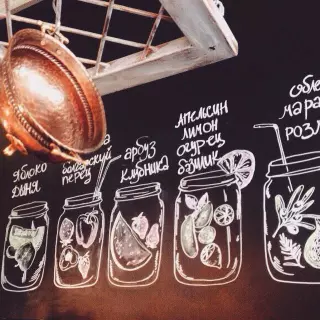 яблоко
дыня
болгарский
перец
арбуз
клубника
апельсин
лимон
огурец
базилик